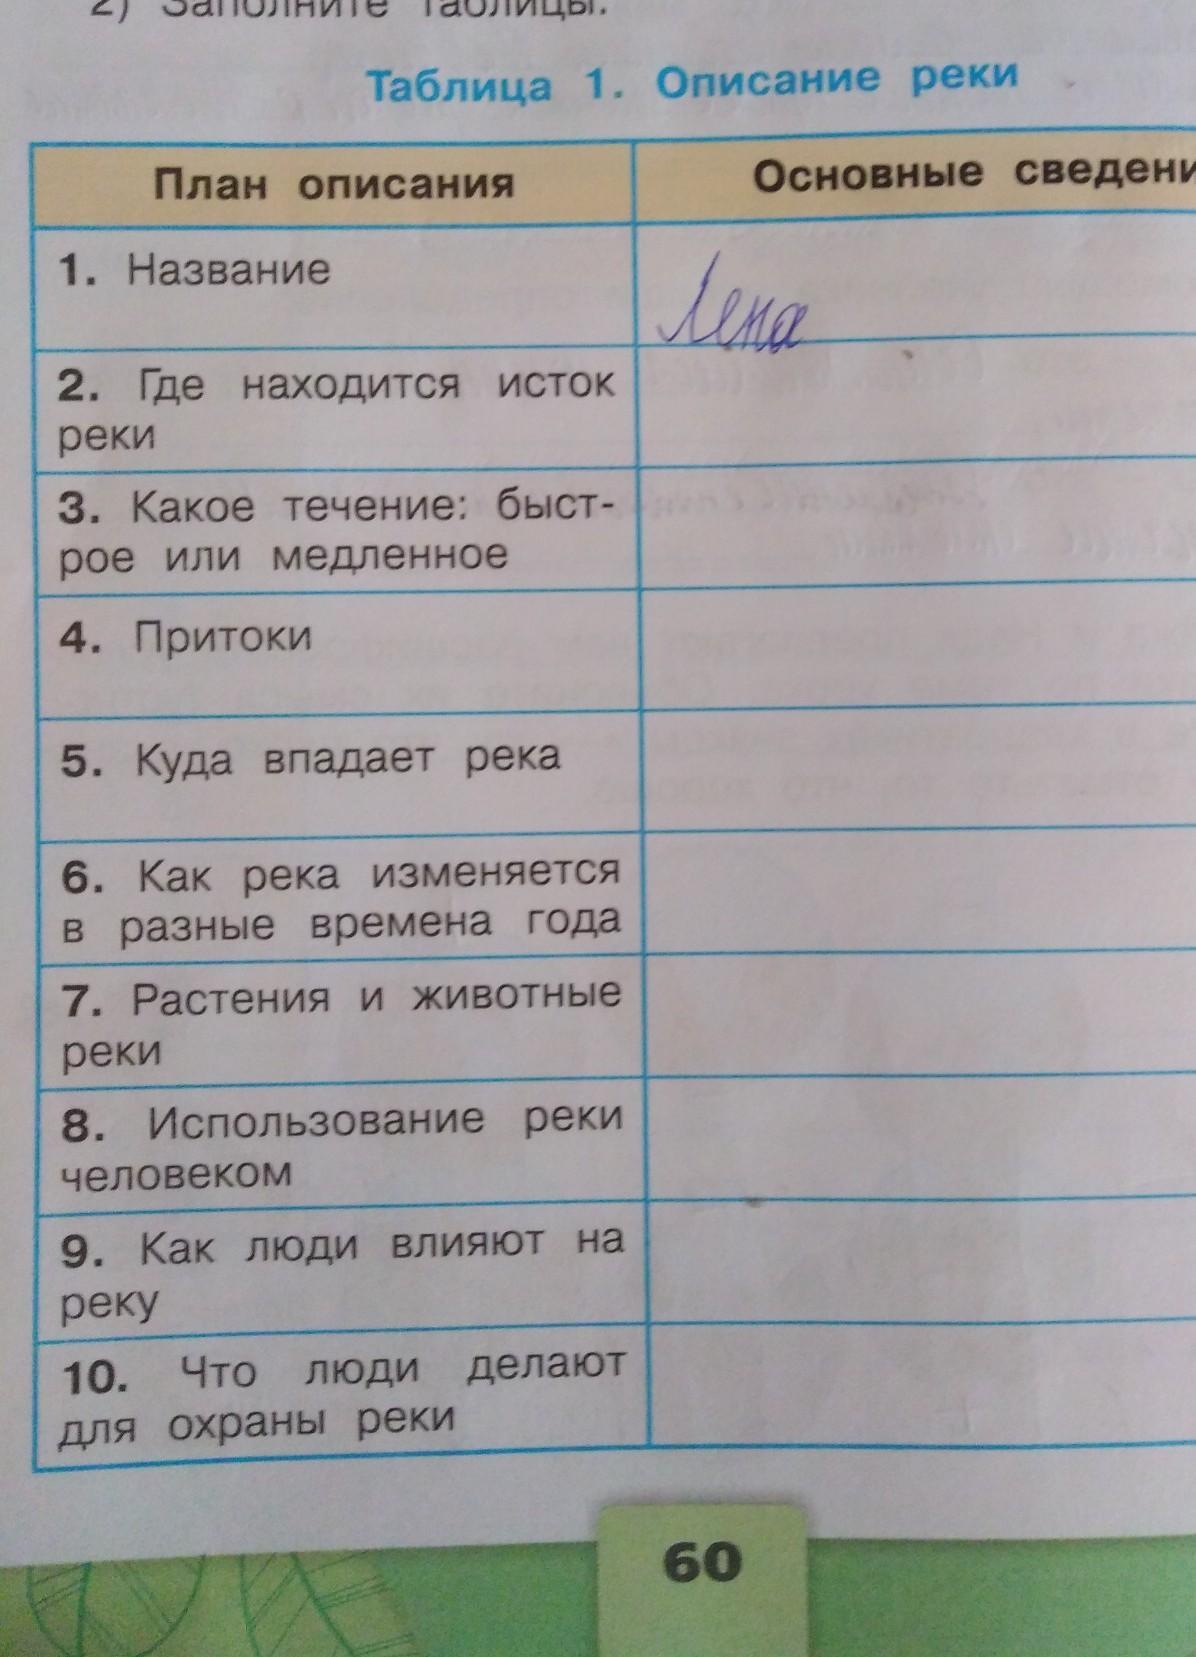 2) Заполните таблицы.
Таблица 1. Описание реки
План описания
Основные сведени
1. Название
Лена
2. Где находится исток
реки
3. Какое течение: быст-
рое или медленное
4. Притоки
5. Куда впадает река
6. Как река изменяется
в разные времена года
7. Растения и животные
реки
8. Использование реки
человеком
9. Как люди влияют на
реку
10. Что люди делают
для охраны реки
60